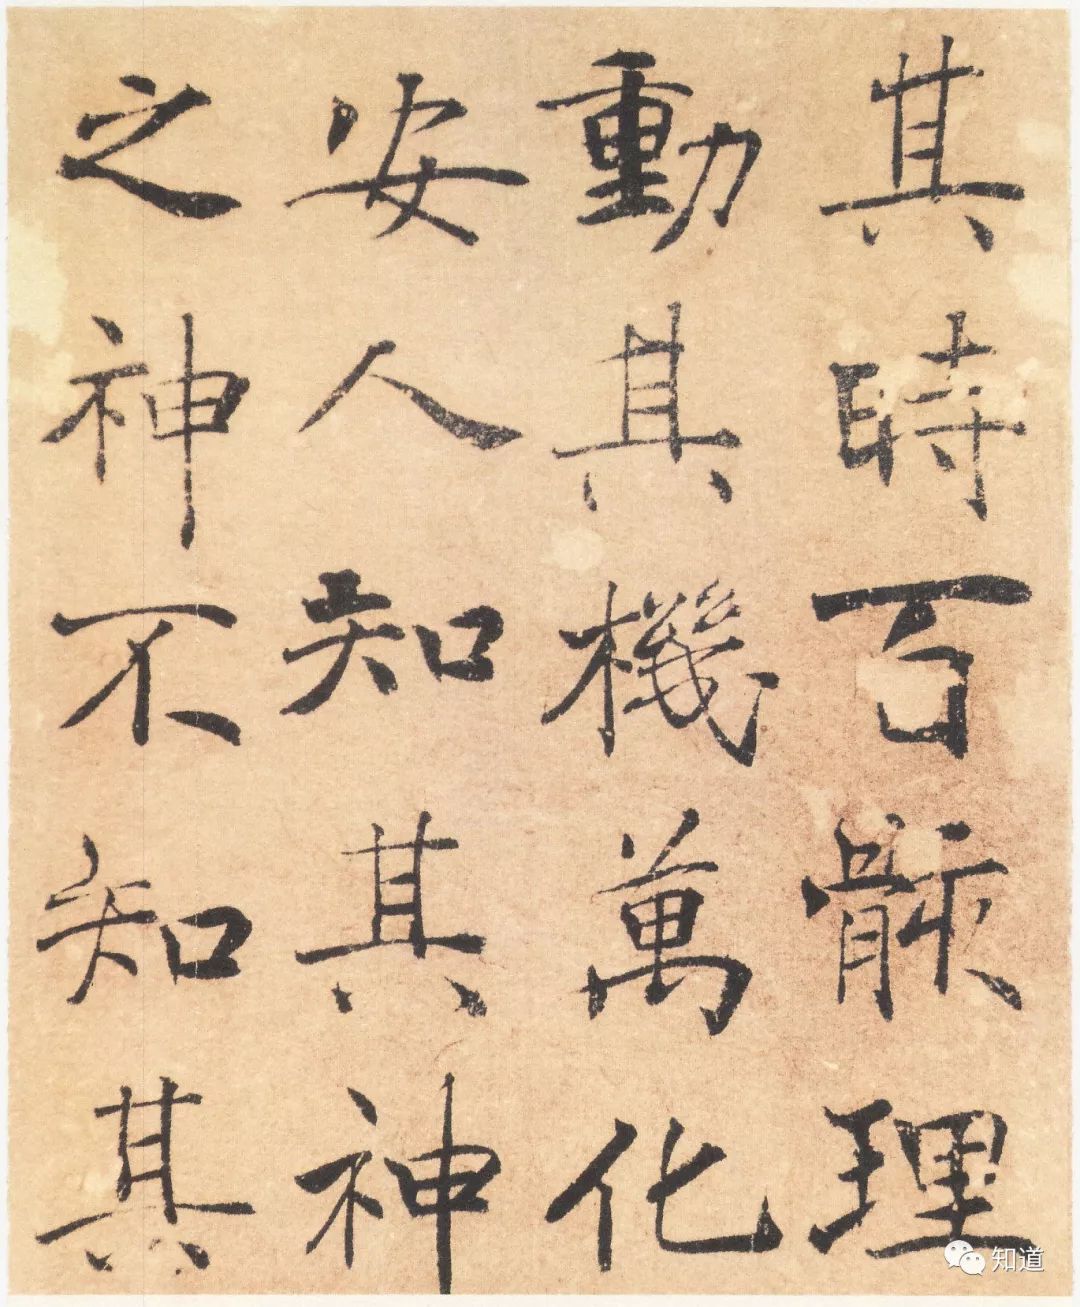 其時百骸理
動其機萬化
安人知其神
之神不知其
知道